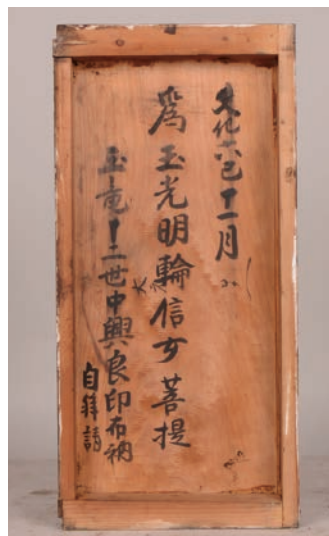 文化六己巳十一月
為玉光明輪信女菩提
玉竜十二世中興良印布衲
自拜請